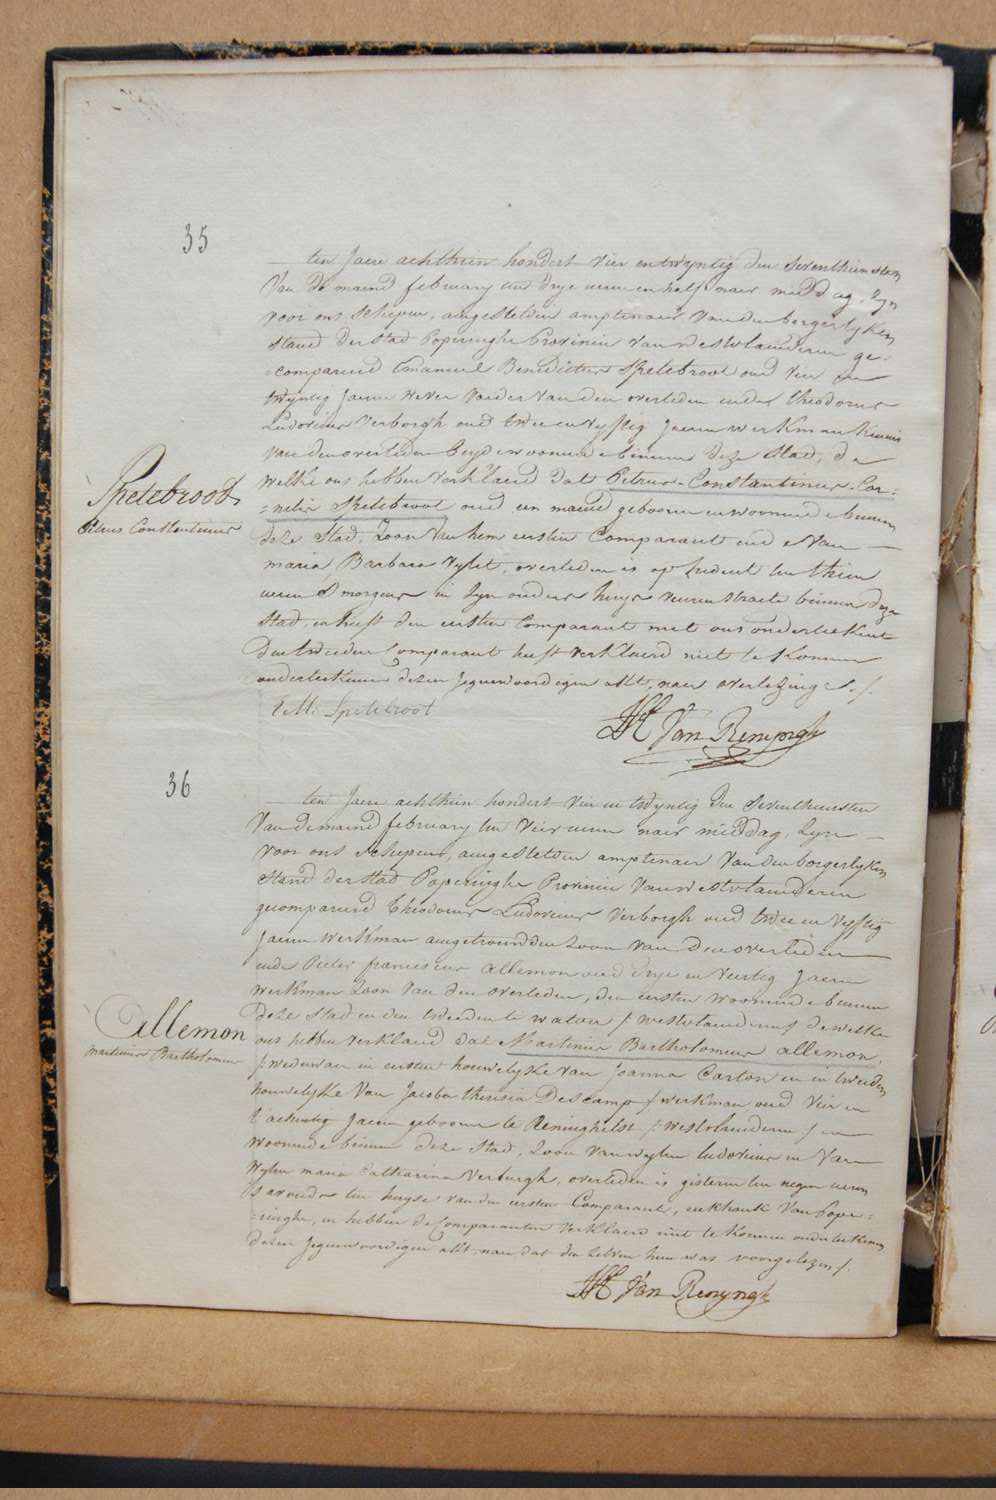 35
ten Jaere achthien hondert vier en twyntig den Seventhiensten
Van de maend february ten drye uren en half naer middag, Zyn
voor ons schepen, aengestelden amptenaer Van den borgerlyken
stand der stad Poperinghe Provincie van westvlaenderen ge-
-compareerd Emanuel Benedictus Spelebroot oud vier en
twyntig Jaeren wever vaeder van den overleden ende Theodorus
Ludovicus Verborgh oud twee en vyftig Jaeren werkman kennis
van den overleden beyde woonende binnen deze Stad, de
welke ons hebben verklaerd dat Petrus Constantinus Cor-
-nelis Spelebroot oud een maend geboren en woonende binnen
Spelebroot
Petrus Constantinus
deze Stad, Zoon Van hem eersten Comparant ende Van
maria Barbara Vylet, overleden is op heden ten thien
uren S morgens in Zyn ouders huys veurnestraete binnen deze
Stad, en heeft den eersten Comparant met ons onderteekent
Den tweeden Comparant heeft verklaerd niet te konnen
onderteekenen dezen Jegenwoordigen akt, naer overlezing
Spelebroot
Van Renynghe
36
ten Jaere achthien hondert vier en twyntig den Seventhiensten
Van de maend february ten vier uren naer middag, Zyn
voor ons schepen, aengestelden amptenaer Van den borgerlyken
Stand der stad Poperinghe Provincie Van westvlaenderen
gecompareerd Theodorus Ludovicus Verborgh oud twee en vyftig
Jaeren werkman aengetrouwden Zoon van den overleden
ende Pieter franciscus allemon oud drye en veertig Jaeren
werkman Zoon Van den overleden, den eersten woonende binnen
deze Stad en den tweeden te watou / westvlaenderen / dewelke
ons hebben verklaerd dat Martinus Bartholomeus allemon,
Allemon
martinus Bartholomeus
/ weduwaer in eersten houwelyke van Joanna Carton en in tweeden
houwelyke Van Jacoba theresia Descamp / werkman oud vier en
t'achentig Jaeren geboren te Reninghelst / westvlaenderen / en
woonende binnen deze Stad, Zoon van wylen ludovicus en Van
wylen maria Catharina Verburgh, overleden is gisteren ten negen uren
S avonds ten huyse van den eersten Comparant, eekhoute Van Pope-
-ringhe, en hebben de Comparanten verklaerd niet te konnen onderteekenen
dezen Jegenwoordigen akt naer dat den zelven hun was voorgelezen /.
Van Renynghe